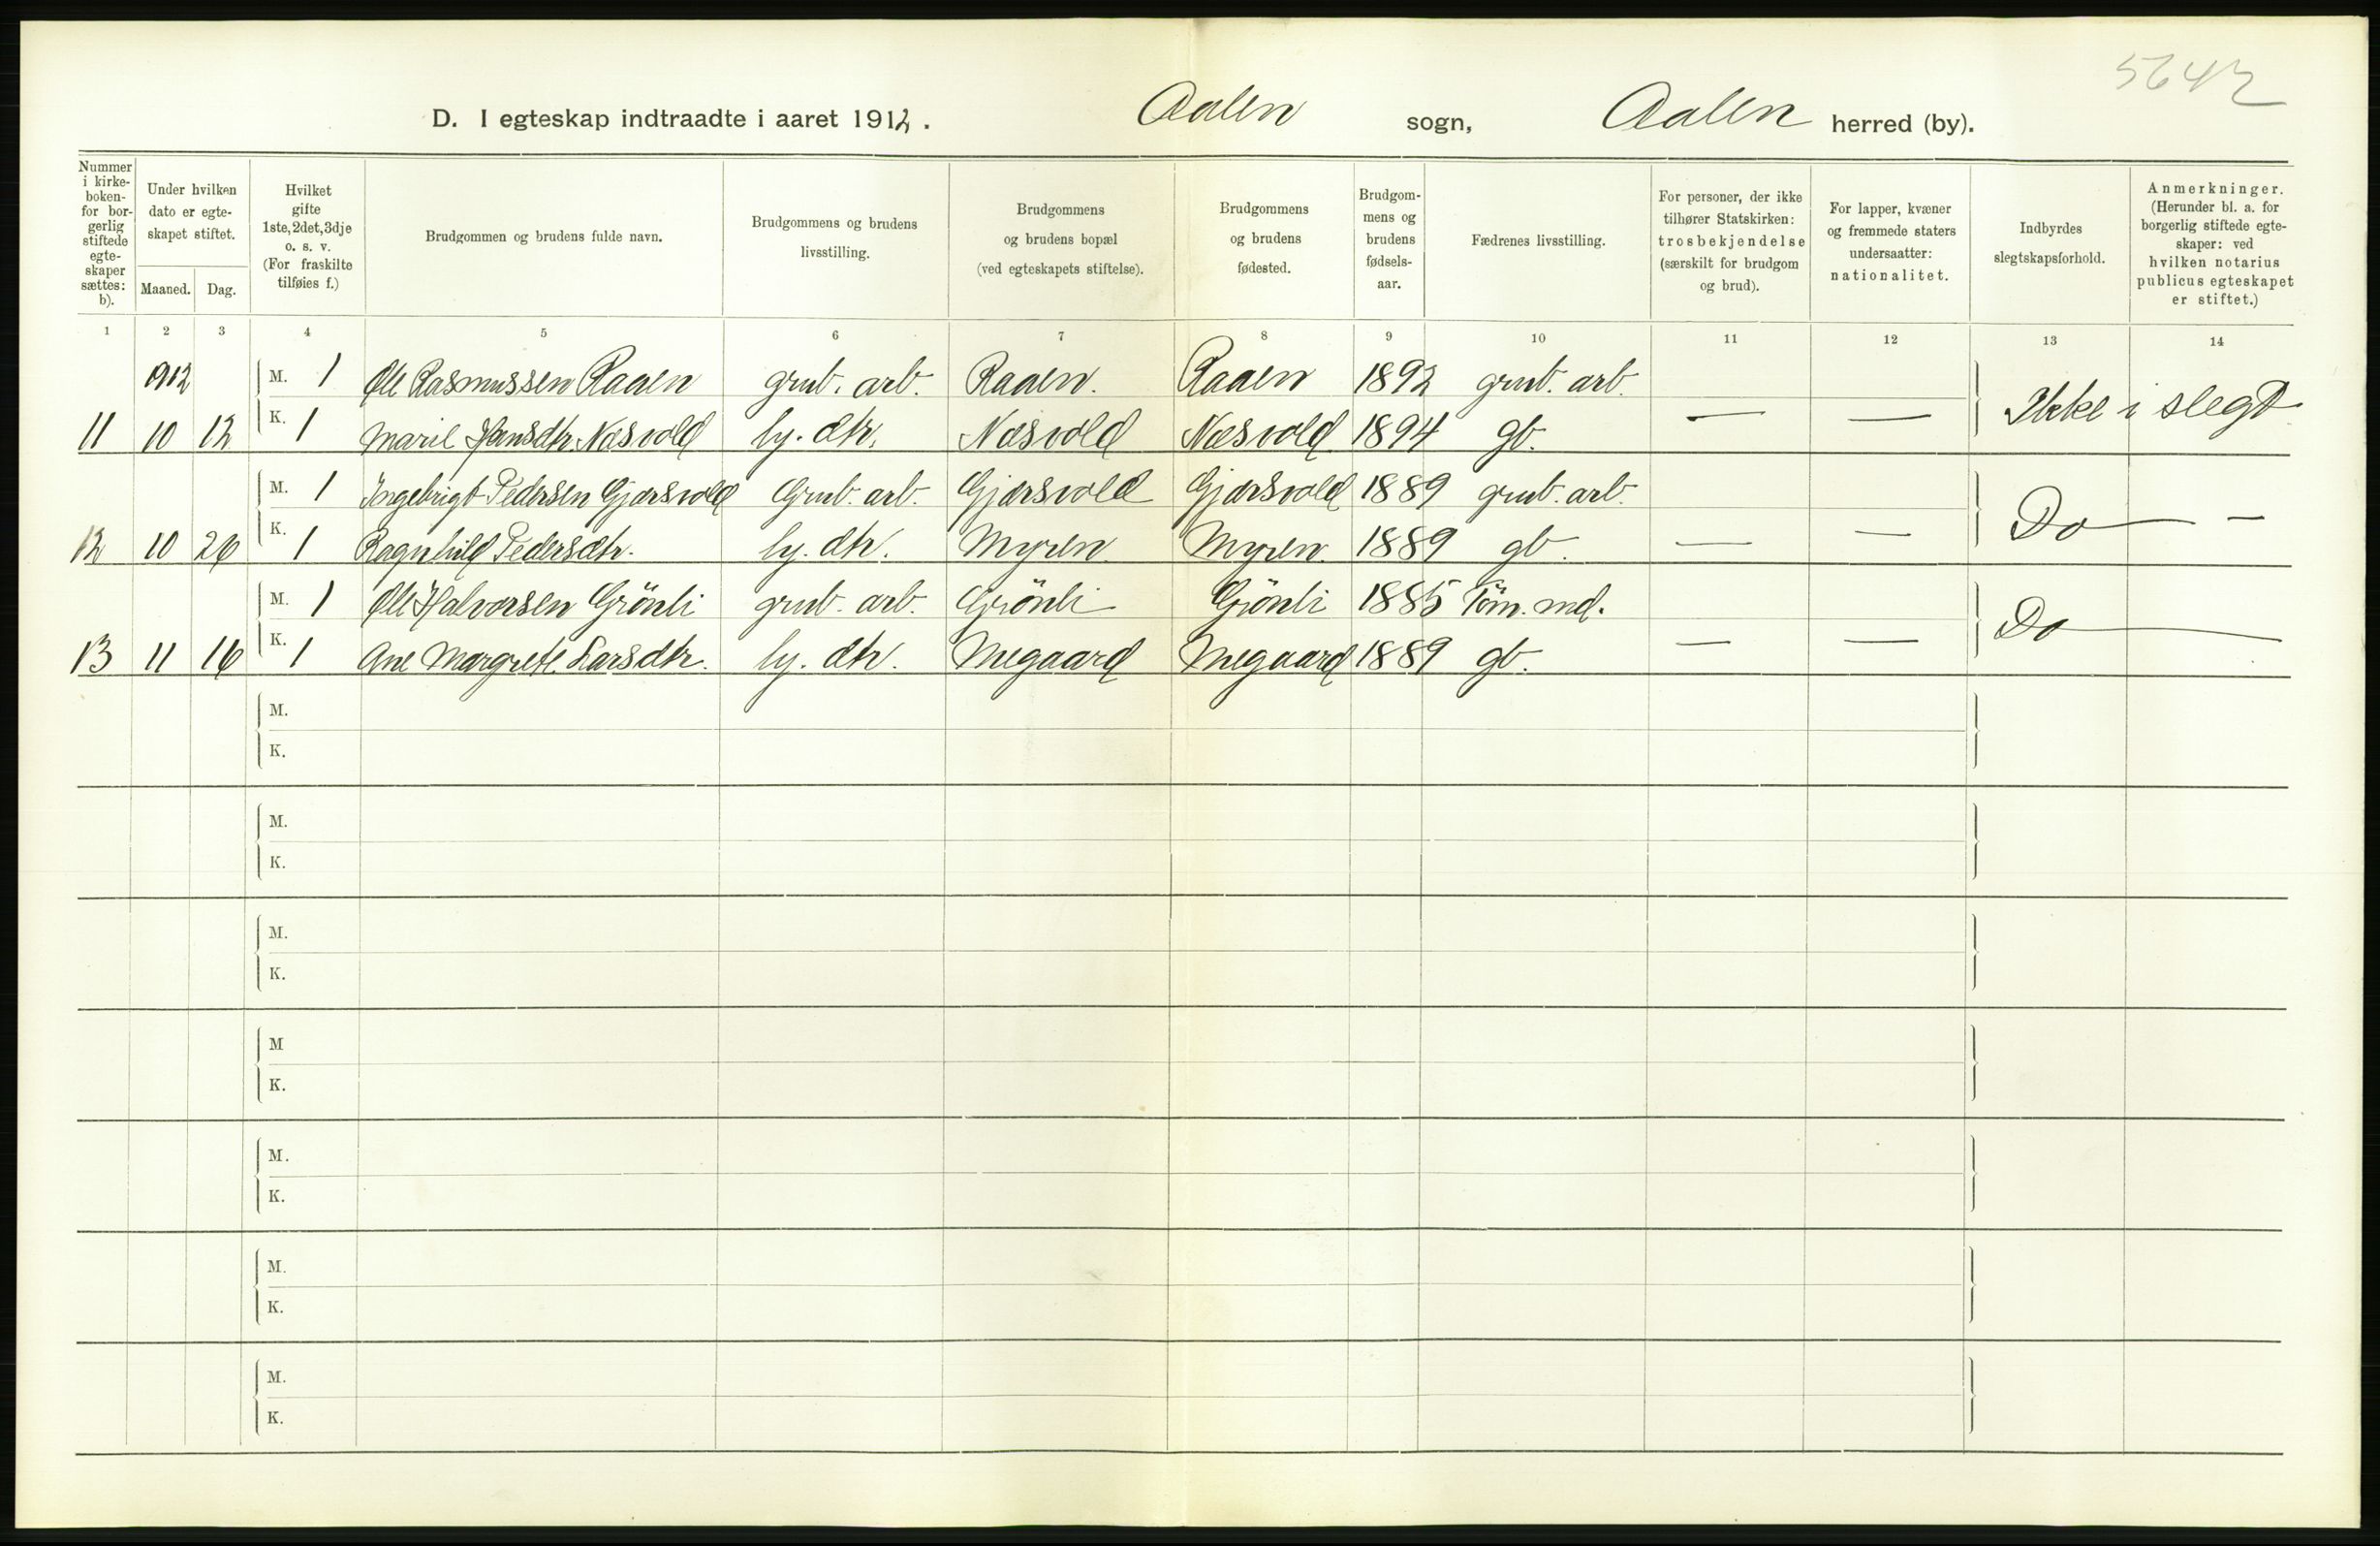 5642
D. I egteskap indtraadte i aaret 1912. Aalen sogn, Aalen herred (by).
Nummer i kirke-boken- for bor-gerlig stiftede egte-skaper sættes: b).
Under hvilken dato er egte-skapet stiftet.
Maaned. Dag.
Hvilket gifte 1ste, 2det, 3dje o. s. v. (For fraskilte tilføies f.)
Brudgommen og brudens fulde navn.
Brudgommens og brudens livsstilling.
Brudgommens og brudens bopæl (ved egteskapets stiftelse).
Brudgommens og brudens fødested.
Brudgom-mens og brudens fødsels-aar.
Fædrenes livsstilling.
For personer, der ikke tilhører Statskirken: trosbekjendelse (særskilt for brudgom og brud).
For lapper, kvæner og fremmede staters undersaatter: nationalitet.
Indbyrdes slegtskapsforhold.
Anmerkninger. (Herunder bl. a. for borgerlig stiftede egte-skaper: ved hvilken notarius publicus egteskapet er stiftet.)
1 2 3 4 5 6 7 8 9 10 11 12 13 14
1912 M. 1 Ole Rasmussen Raaen grub. arb. Raaen. Raaen 1892 grub. arb.
11 10 12 K. 1 Marie Hansdtr. Næsvold ly. dtr. Næsvold Næsvold 1894 gb. — — Ikke i slegt
M. 1 Ingebrigt Pedersen Gjærsvold Grub. arb. Gjærsvold Gjærsvold 1889 grub. arb.
12 10 26 K. 1 Ragnhild Pedersdtr. ly. dtr. Myren Myren 1889 gb. — — Do — —
M. 1 Ole Halvorsen Grönli grub. arb. Grönli Grönli 1885 Töm. md.
13 11 16 K. 1 Ane Margrete Larsdtr. ly. dtr. Megaard Megaard 1889 gb. — — Do —
M.
K.
M.
K.
M.
K.
M
K.
M.
K.
M.
K.
M.
K.